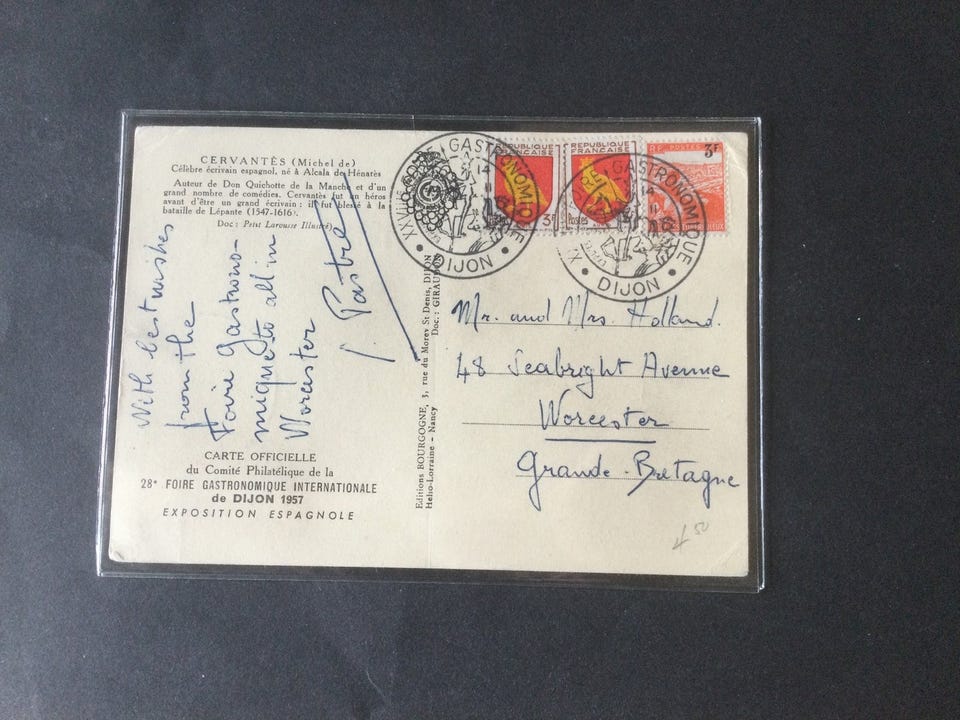 CERVANTÈS (Michel de)
Célèbre écrivain espagnol, né à Alcala de Hénarès
Auteur de Don Quichotte de la Manche et d'un
grand nombre de comédies. Cervantès fut un héros
avant d'être un grand écrivain : il fut blessé à la
bataille de Lépante (1547-1616).
Doc : Petit Larousse Illustré)
With best wishes
from the
Foire Gastrono-
mique to all in
Worcester
J. Pastre
CARTE OFFICIELLE
du Comité Philatélique de la
28e FOIRE GASTRONOMIQUE INTERNATIONALE
de DIJON 1957
EXPOSITION ESPAGNOLE
Editions BOURGOGNE, 3, rue du Morey St-Denis, DIJON
Hélio-Lorraine - Nancy Doc : GIRAUDON
REPUBLIQUE FRANÇAISE
3F
REPUBLIQUE FRANÇAISE
Postes
R.F. POSTES 3F
XXVIIe FOIRE GASTRONOMIQUE
DIJON
FOIRE GASTRONOMIQUE
DIJON
Mr. and Mrs. Holland.
48 Seabright Avenue
Worcester
Grande-Bretagne
4 50